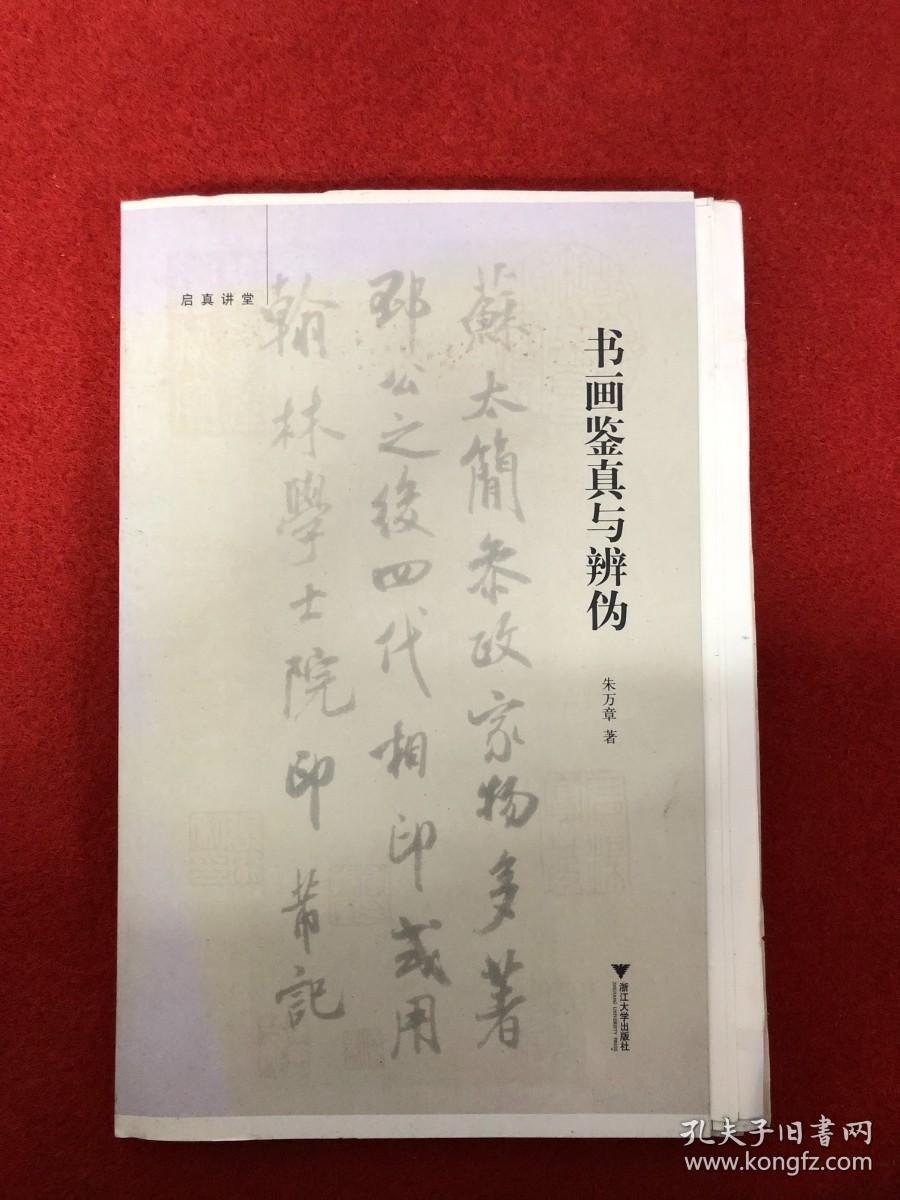 启真讲堂
书画鉴真与辨伪
朱万章 著
蘇太簡参政家物多著
邳公之後四代相印或用
翰林學士院印 芾記
浙江大学出版社
ZHEJIANG UNIVERSITY PRESS
孔夫子旧書网
www.kongfz.com